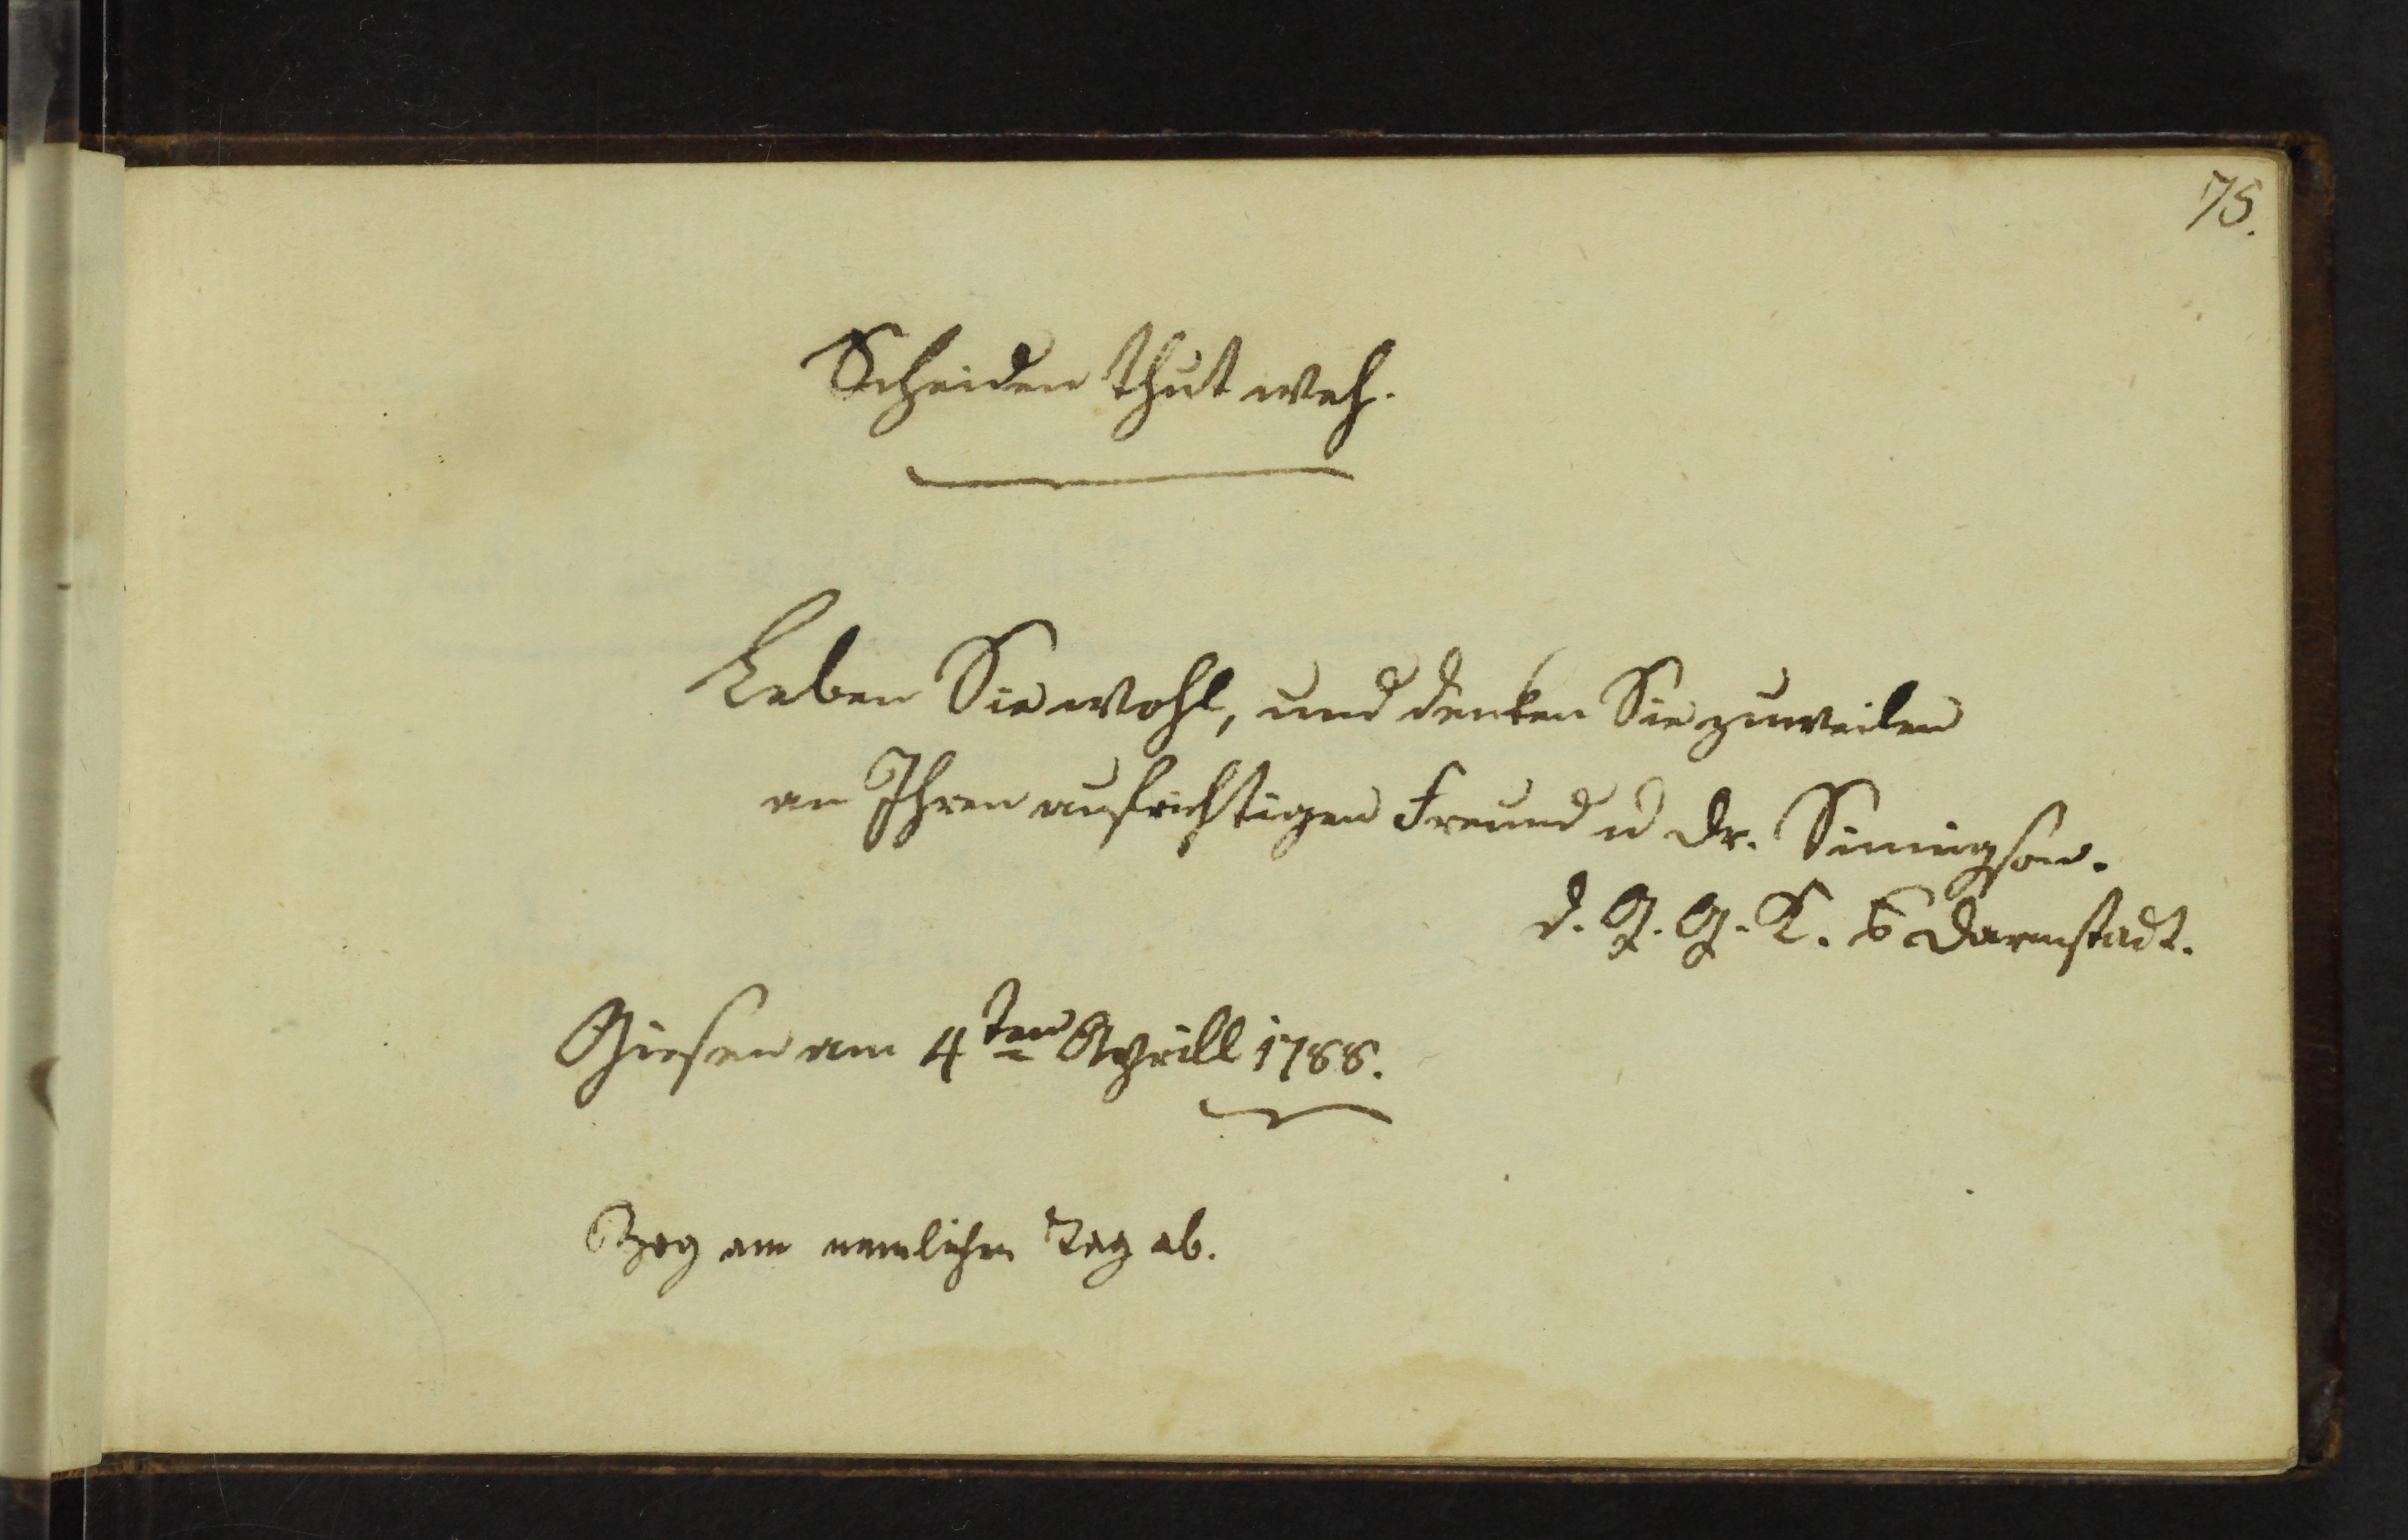 75.
Scheiden thut weh.
Leben Sie wohl, und denken Sie zuweilen
an Ihren aufrichtigen Freund u Dr.
d. G. G. K. Darmstadt.
Giesen am 4ten Aprill 1788.
Zog am nemlichen Tag ab.